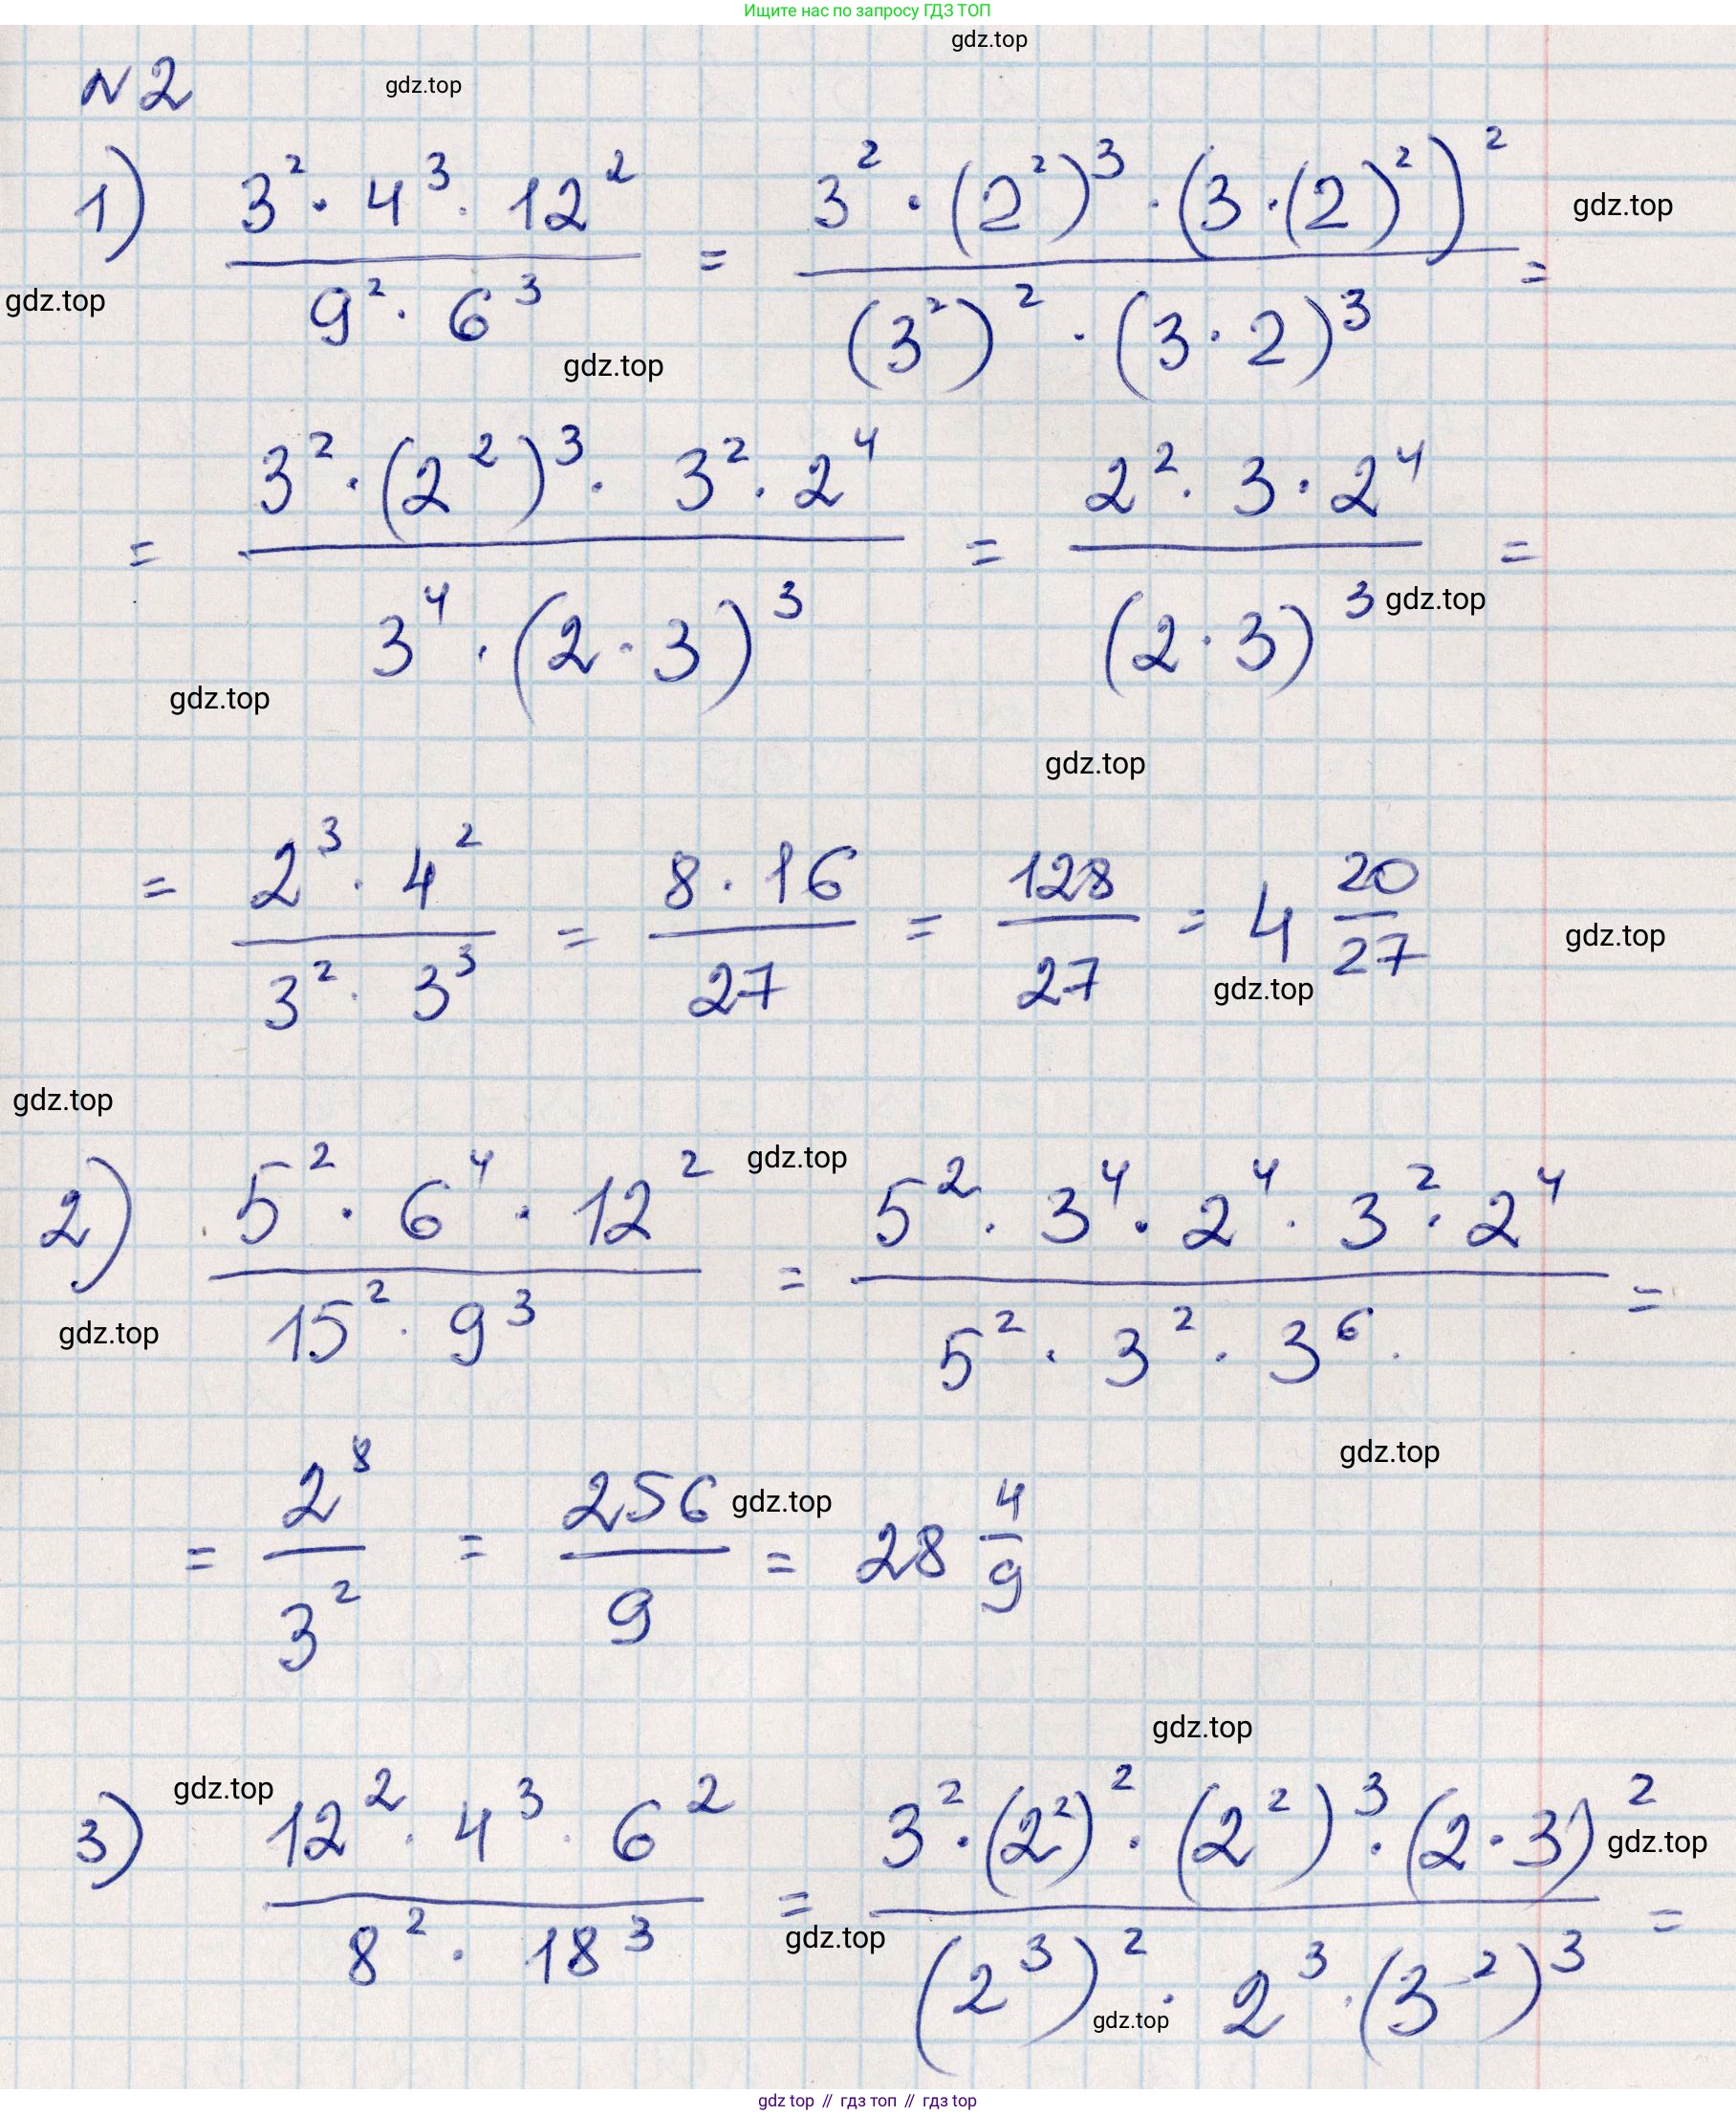 Ищите нас по запросу ГДЗ ТОП
gdz.top
№2 gdz.top
1) (3² · 4³ · 12²) / (9² · 6³) = (3² · (2²)³ · (3 · (2)²)²) / ((3²)² · (3 · 2)³) =
gdz.top
gdz.top
gdz.top
= (3² · (2²)³ · 3² · 2⁴) / (3⁴ · (2 · 3)³) = (2² · 3 · 2⁴) / (2 · 3)³ =
gdz.top
gdz.top
gdz.top
= (2³ · 4²) / (3² · 3³) = (8 · 16) / 27 = 128/27 = 4 20/27
gdz.top
gdz.top
gdz.top
2) (5² · 6⁴ · 12²) / (15² · 9³) = (5² · 3⁴ · 2⁴ · 3² · 2⁴) / (5² · 3² · 3⁶ ·) =
gdz.top
gdz.top
gdz.top
= 2⁸/3² = 256/9 = 28 4/9
gdz.top
gdz.top
3) (12² · 4³ · 6²) / (8² · 18³) = (3² · (2²)² · (2²)³ · (2 · 3)²) / ((2³)² · 2³ · (3²)³) =
gdz.top
gdz.top
gdz.top
gdz.top
gdz top // гдз топ // гдз top